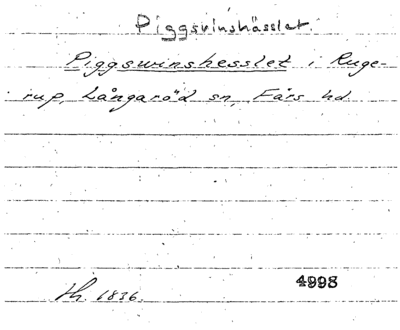 Piggsvinshässlet.
Piggswinshesslet i Ruge-
rup, Långaröd sn, Färs hd.
4998
Th. 1836.